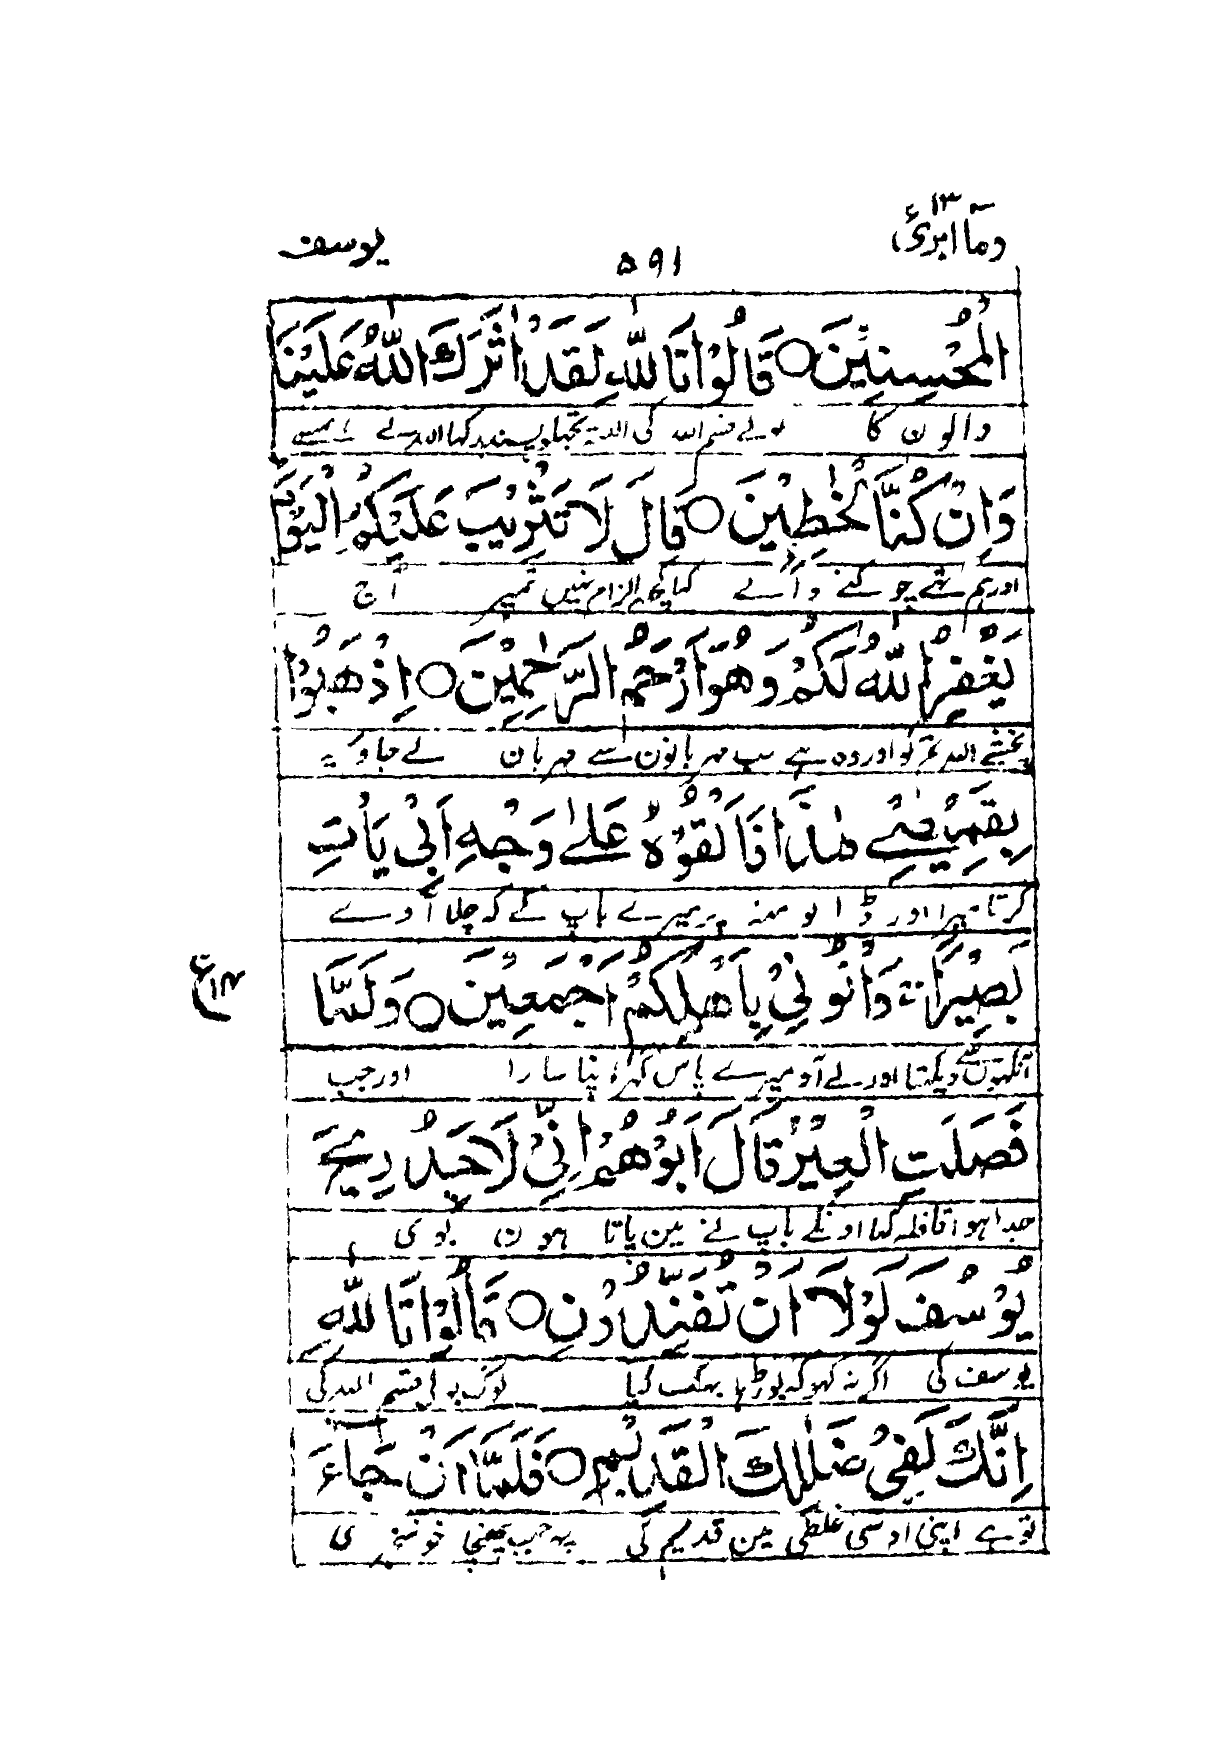 وما ابرئ ١٣
٥٩١
يوسف
الْمُحْسِنِيْنَ ○ قَالُوْا تَاللّٰهِ لَقَدْ اٰثَرَكَ اللّٰهُ عَلَيْنَا
والون کا بولے قسم اللہ کی البتہ پسند کیا اللہ نے ہمسے
وَاِنْ كُنَّا لَخٰطِـِٕيْنَ ○ قَالَ لَا تَثْرِيْبَ عَلَيْكُمُ الْيَوْمَ
اور ہم تھے چوکنے والے کہا کچھ الزام نہیں تمپر آج
يَغْفِرُ اللّٰهُ لَكُمْ وَهُوَ اَرْحَمُ الرّٰحِمِيْنَ ○ اِذْهَبُوْا
بخشے اللہ تمکو اور وہ ہے سب مہربانون سے مہربان لے جاو یہ
بِقَمِيْصِيْ هٰذَا فَاَلْقُوْهُ عَلٰى وَجْهِ اَبِيْ يَاْتِ
کرتا میرا اور ڈالو منہ پر میرے باپ کے کہ چلا آوے
بَصِيْرًا ۚ وَاْتُوْنِيْ بِاَهْلِكُمْ اَجْمَعِيْنَ ○ وَلَمَّا
آنکھون سے دیکھتا اور لے آو میرے پاس گھر اپنا سارا اور جب
فَصَلَتِ الْعِيْرُ قَالَ اَبُوْهُمْ اِنِّيْ لَاَجِدُ رِيْحَ
جدا ہوا قافلہ کہا اونکے باپ نے مین پاتا ہون بوی
يُوْسُفَ لَوْلَا اَنْ تُفَنِّدُوْنِ ○ قَالُوْا تَاللّٰهِ
یوسف کی اگر نہ کہو کہ بوڑھا بہک گیا لوگ بولے قسم اللہ کی
اِنَّكَ لَفِيْ ضَلٰلِكَ الْقَدِيْمِ ○ فَلَمَّا اَنْ جَاءَ
تو ہے اپنی اوسی غلطی مین قدیم کی پھر جب پہنچا خوشخبری